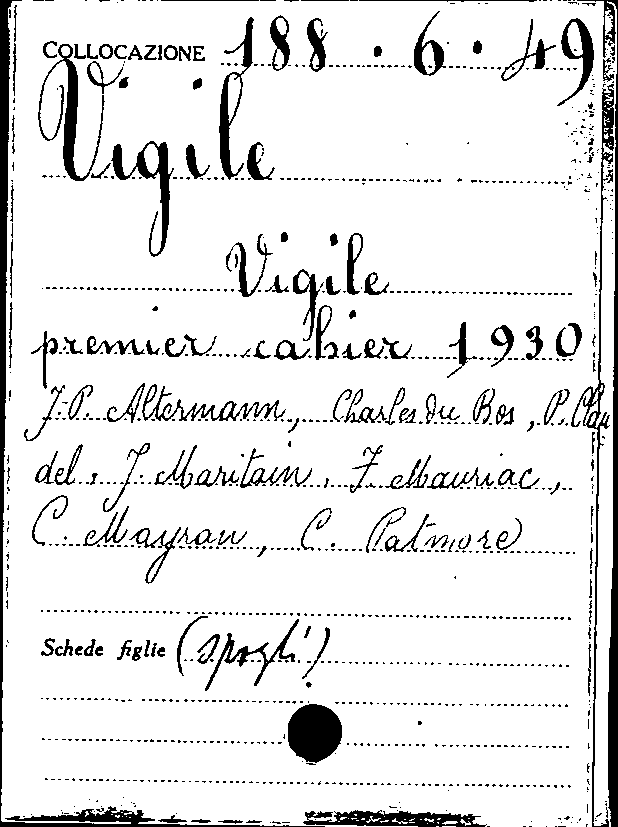 COLLOCAZIONE 188 . 6 . 49
Vigile
Vigile
premier cahier 1930
J.-P. Altermann, Charles du Bos, P. Clau
del, J. Maritain, F. Mauriac,
C. Mayran, C. Patmore
Schede figlie (spogli)